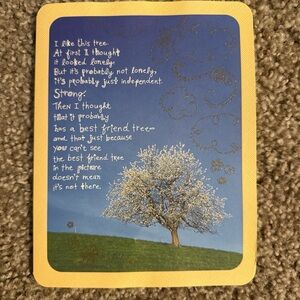 I like this tree.
At first I thought
it looked lonely.
But it's probably not lonely,
it's probably just independent.
Strong.
Then I thought
that it probably
has a best friend tree—
and that just because
you can't see
the best friend tree
in the picture
doesn't mean
it's not there.